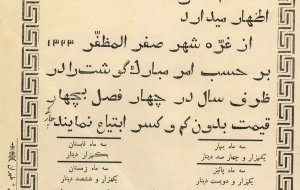 اظهار میدارد
از غرّه شهر صفر المظفّر ۱۳۲۳
بر حسب امر مبارك گوشت را در
ظرف سال در چهار فصل بچهار
قیمت بدون کم و کسر ابتیاع نمایند
سه ماه بهار
یکهزار و چهار صد دینار
سه ماه تابستان
یکهزار دینار
سه ماه پائیز
یکهزار و دویست دینار
سه ماه زمستان
یکهزار و ششصد دینار